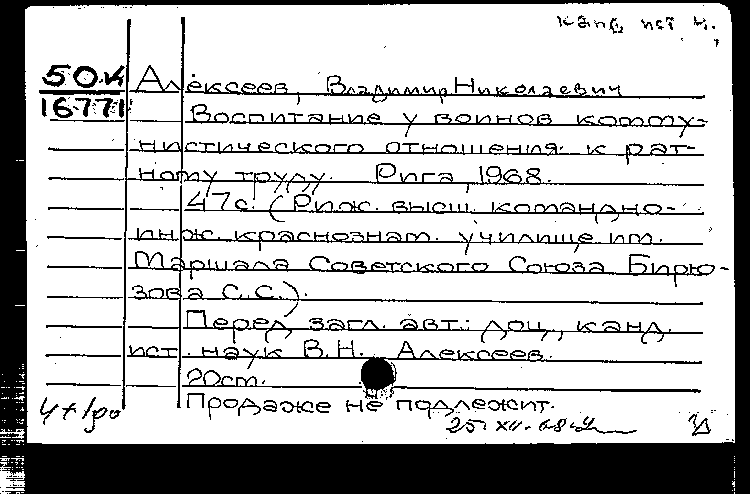 канд ист н.
50К Алексеев, Владимир Николаевич
16771 Воспитание у воинов комму-
нистического отношения к рат-
ному труду. Рига, 1968.
47с. (Риж. высш. командно-
инж. краснознам. училище им.
Маршала Советского Союза Бирю-
зова С.С.).
Перед загл. авт.: доц., канд.
ист. наук В.Н. Алексеев.
20cm.
Продаже не подлежит.
25 XII-68